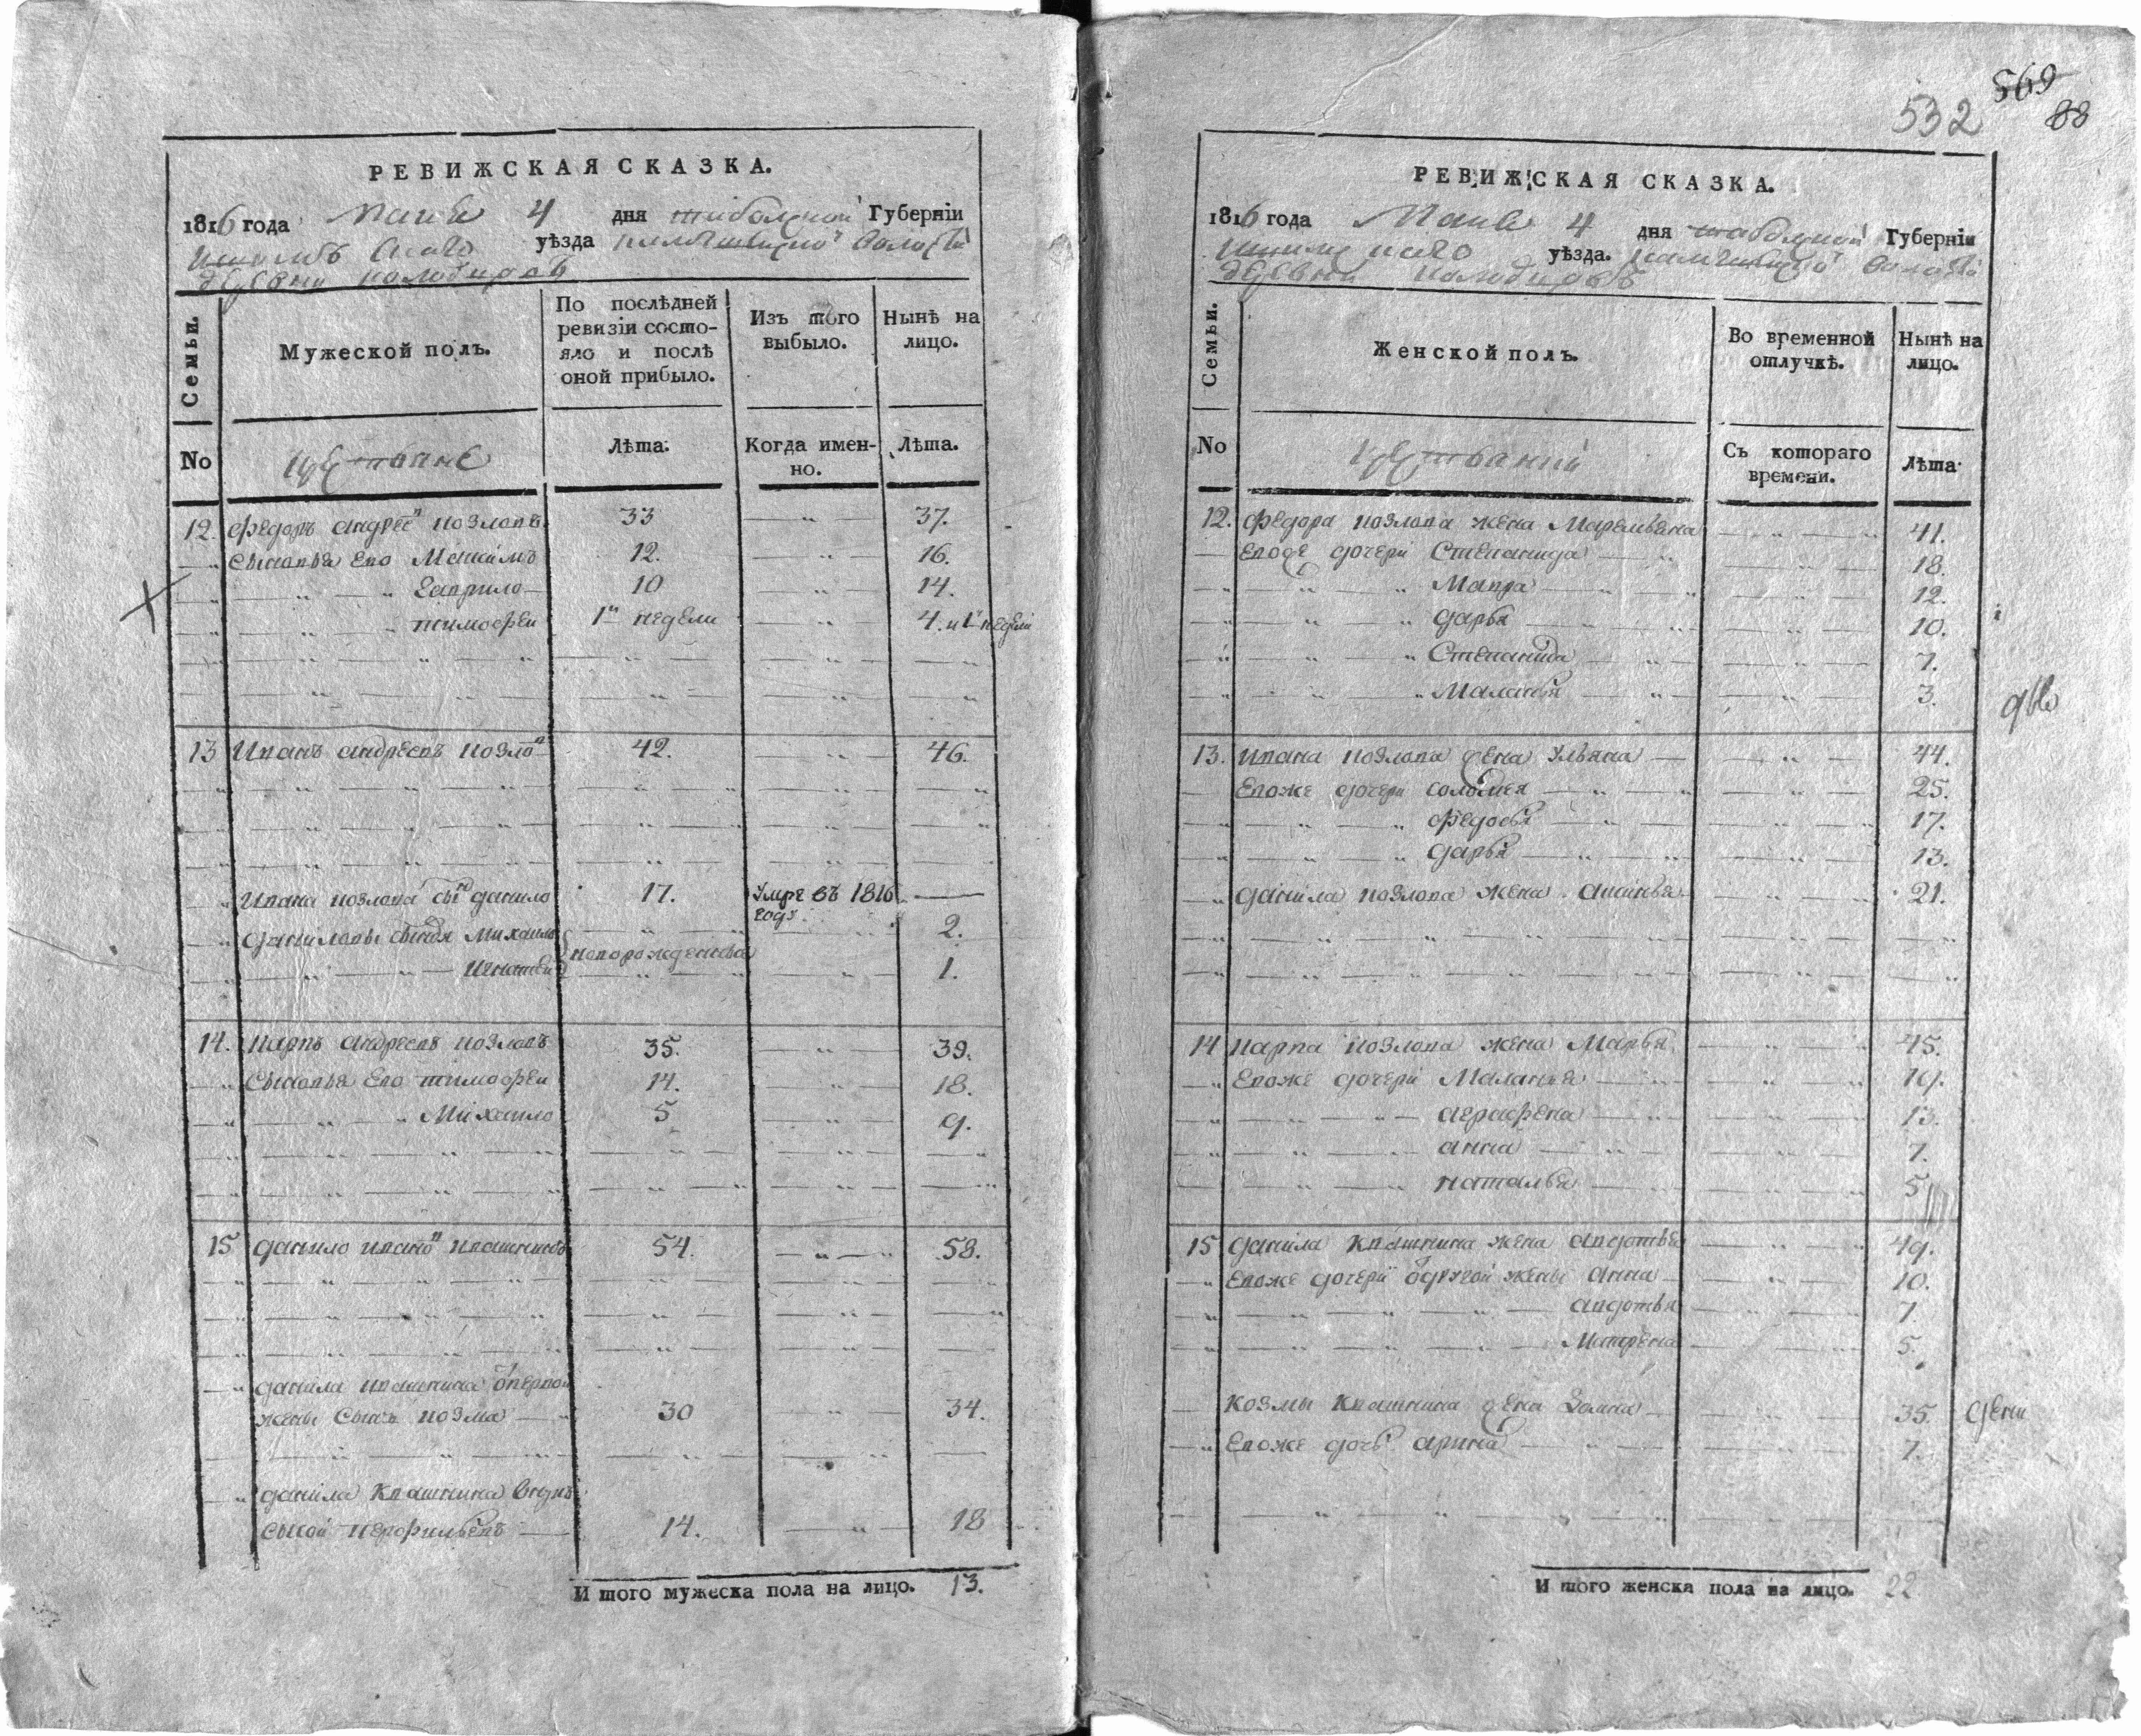 РЕВИЖСКАЯ СКАЗКА.
1816 года Маия 4 дня тобольской Губерніи
Ишимъ скаго уѣзда волости
деревни
Семьи.
Мужеской полъ.
По послѣдней ревизіи состояло и послѣ оной прибыло.
Изъ того выбыло.
Нынѣ на лицо.
No
крестьяне
Лѣта.
Когда именно.
Лѣта.
12. Федоръ андреевъ козловъ 33 — „ — 37.
„ Сыновья Его Максимъ 12. „ 16.
„ „ „ Гаврило 10 „ 14.
„ „ „ тимофеи 1й недели „ 4. и 1й недели
13 Иванъ андреевъ козловъ 42. „ 46.
„ Ивана козлова сынъ данило 17. Умре въ 1816 году —
„ даниловы сыновья Михаило новорожденныя 2.
„ „ „ Игнатеи „ 1.
14. карпъ андреевъ козловъ 35. „ 39.
„ Сыновья Его тимофеи 14. „ 18.
„ „ „ Михаило 5 „ 9.
15 данило ивановъ квашнинъ 54. „ 58.
„ данила квашнина от первой
жены Сынъ козма 30 „ 34.
„ данила Квашнина
14. „ 18
И того мужеска пола на лицо. 13.
569
532 88
РЕВИЖСКАЯ СКАЗКА.
1816 года Маия 4 дня тобольской Губерніи
Ишимъ скаго уѣзда. волости
деревни
Семьи.
Женской полъ.
Во временной отлучкѣ.
Нынѣ на лицо.
No
крестьянки
Съ котораго времени.
Лѣта.
12. Федора козлова жена Маремьяна 41.
Евоже дочери Степанида 18.
„ Мавра 12.
„ дарья 10.
„ Степанида 7.
„ Маланья 3.
13. Ивана козлова жена Ульяна 44.
Евоже дочери соломея 25.
„ Федосья 17.
„ дарья 13.
„ данила козлова жена 21.
14 карпа козлова жена Марья 45.
„ Евоже дочери Маланья 19.
„ аграфена 13.
„ анна 7.
„ наталья 5
15 данила Квашнина жена авдотья 49.
„ Евоже дочери от другой жены анна 10.
„ авдотья 7.
„ Матрена 5.
козмы Квашнина жена 35.
„ Евоже дочь арина 7.
И того женска пола на лицо. 22